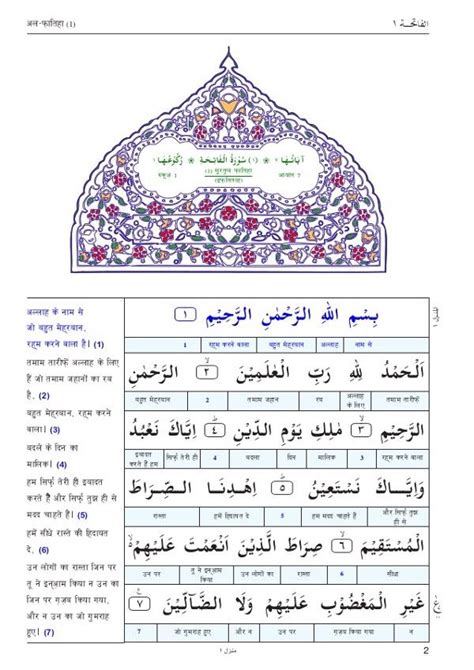 अल-फातिहा (1) الفاتحة ١
اٰيَاتُهَا ٧ ❀ (١) سُوْرَةُ الْفَاتِحَةِ ❀ رُكُوْعُهَا ١
रुकूअ़ 1 (1) सूरतुल फातिहा आयात 7
अल्लाह के नाम से
जो बहुत मेहरबान,
रहम करने वाला है। (1)
तमाम तारीफें अल्लाह के लिए
हैं जो तमाम जहानों का रब
है. (2)
बहुत मेहरबान, रहम करने
वाला। (3)
बदले के दिन का
मालिक। (4)
हम सिर्फ़ तेरी ही इबादत
करते हैं और सिर्फ़ तुझ ही से
मदद चाहते हैं। (5)
हमें सीधे रास्ते की हिदायत
दे. (6)
उन लोगों का रास्ता जिन पर
तू ने इन्आ़म किया न उन का
जिन पर ग़ज़ब किया गया,
और न उन का जो गुमराह
हुए। (7)
بِسْمِ اللهِ الرَّحْمٰنِ الرَّحِيْمِ ١
1 रहम करने वाला बहुत मेहरबान अल्लाह नाम से
اَلْحَمْدُ لِلّٰهِ رَبِّ الْعٰلَمِيْنَ ٢ الرَّحْمٰنِ
बहुत मेहरबान 2 तमाम जहान रब अल्लाह के लिए तमाम तारीफें
الرَّحِيْمِ ٣ مٰلِكِ يَوْمِ الدِّيْنِ ٤ اِيَّاكَ نَعْبُدُ
इबादत करते हैं हम सिर्फ़ तेरी ही 4 बदला दिन मालिक 3 रहम करने वाला
وَاِيَّاكَ نَسْتَعِيْنُ ٥ اِهْدِنَا الصِّرَاطَ
रास्ता हमें हिदायत दे 5 हम मदद चाहते हैं और सिर्फ़ तुझ ही से
الْمُسْتَقِيْمَ ٦ صِرَاطَ الَّذِيْنَ اَنْعَمْتَ عَلَيْهِمْ
उन पर तू ने इन्आ़म किया उन लोगों का रास्ता 6 सीधा
غَيْرِ الْمَغْضُوْبِ عَلَيْهِمْ وَلَا الضَّآلِّيْنَ ٧
7 जो गुमराह हुए और न उन पर ग़ज़ब किया गया न
منزل ١ 2